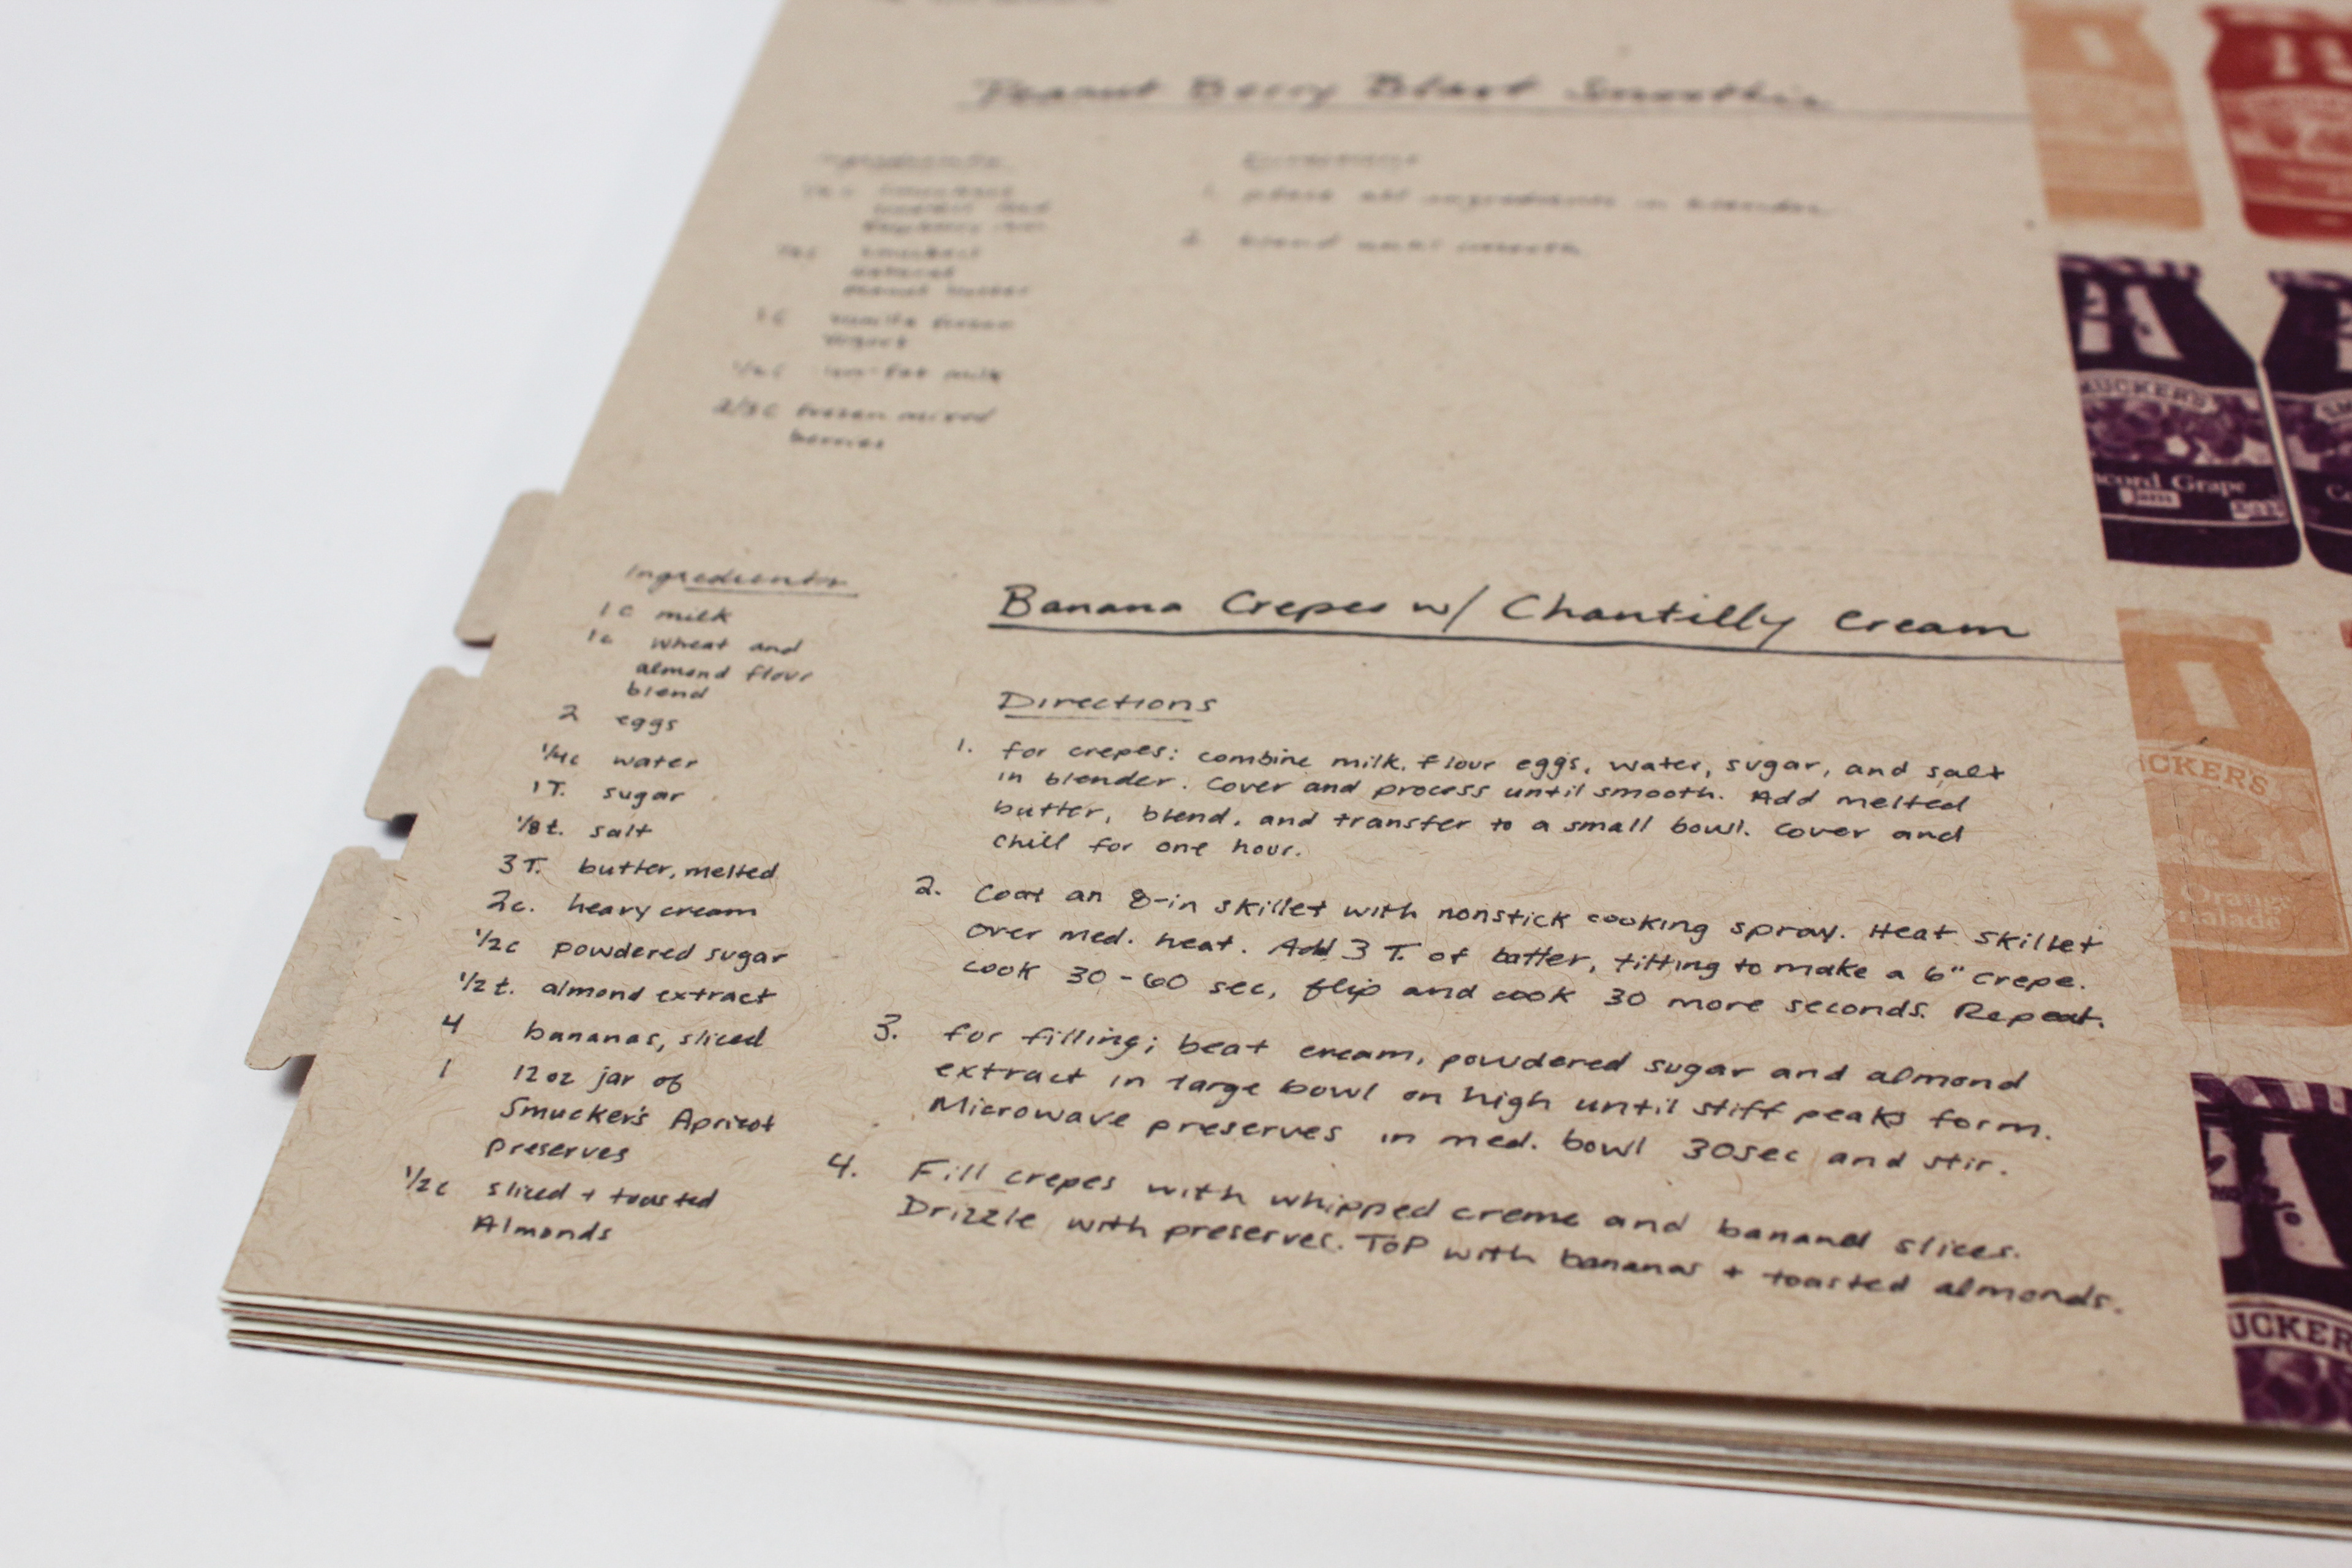 Peanut Berry Blast Smoothie
1. place all ingredients in blender.
2. blend until smooth
1c vanilla frozen
yogurt
low-fat milk
2/3c frozen mixed
berries
Ingredients
1c milk
1c wheat and
almond flour
blend
2 eggs
1/4c water
1T. sugar
1/8t. salt
3T. butter, melted
2c. heavy cream
1/2c powdered sugar
1/2t. almond extract
4 bananas, sliced
1 12oz jar of
Smucker's Apricot
preserves
1/2c sliced + toasted
Almonds
Banana Crepes w/ Chantilly Cream
Directions
1. for crepes: combine milk, flour eggs, water, sugar, and salt
in blender. Cover and process until smooth. Add melted
butter, blend, and transfer to a small bowl. Cover and
chill for one hour.
2. Coat an 8-in skillet with nonstick cooking spray. Heat skillet
over med. heat. Add 3 T. of batter, tilting to make a 6" crepe.
cook 30-60 sec, flip and cook 30 more seconds. Repeat.
3. for filling; beat cream, powdered sugar and almond
extract in large bowl on high until stiff peaks form.
Microwave preserves in med. bowl 30sec and stir.
4. Fill crepes with whipped creme and banana slices.
Drizzle with preserves. Top with bananas + toasted almonds.
UCKER'S
cord Grape
Jam
CKER'S
Orange
malade
UCKER